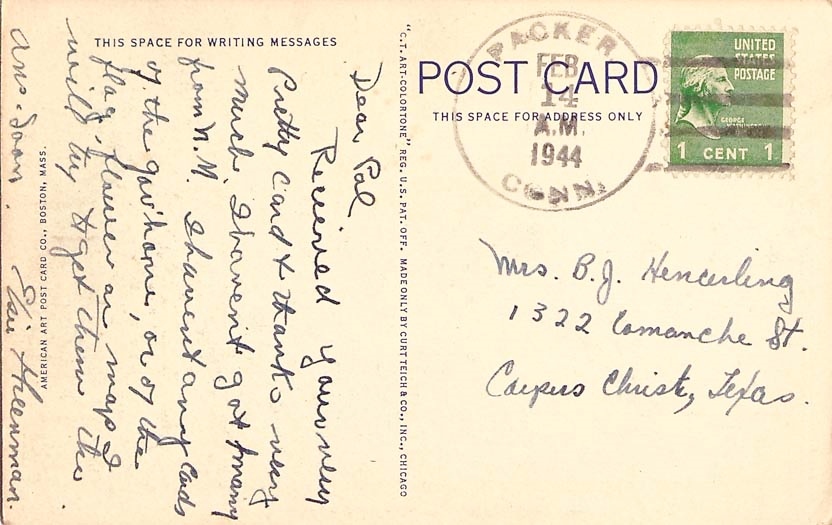 THIS SPACE FOR WRITING MESSAGES
Dear Pal
Received your very
Pretty Card & thanks very
much. I havent got many
from N.M. I havent any Cards
of the gov's home, or of the
flag, flower or map I
will try to get them &
ans. soon.
AMERICAN ART POST CARD CO., BOSTON, MASS.
"C.T. ART-COLORTONE" REG. U.S. PAT. OFF. MADE ONLY BY CURT TEICH & CO., INC., CHICAGO
PACKER
FEB
14
A.M.
1944
CONN.
POST CARD
THIS SPACE FOR ADDRESS ONLY
UNITED
STATES
POSTAGE
GEORGE
WASHINGTON
1 CENT 1
Mrs. B.J. Hencerling
1322 Comanche St.
Corpus Christi, Texas.